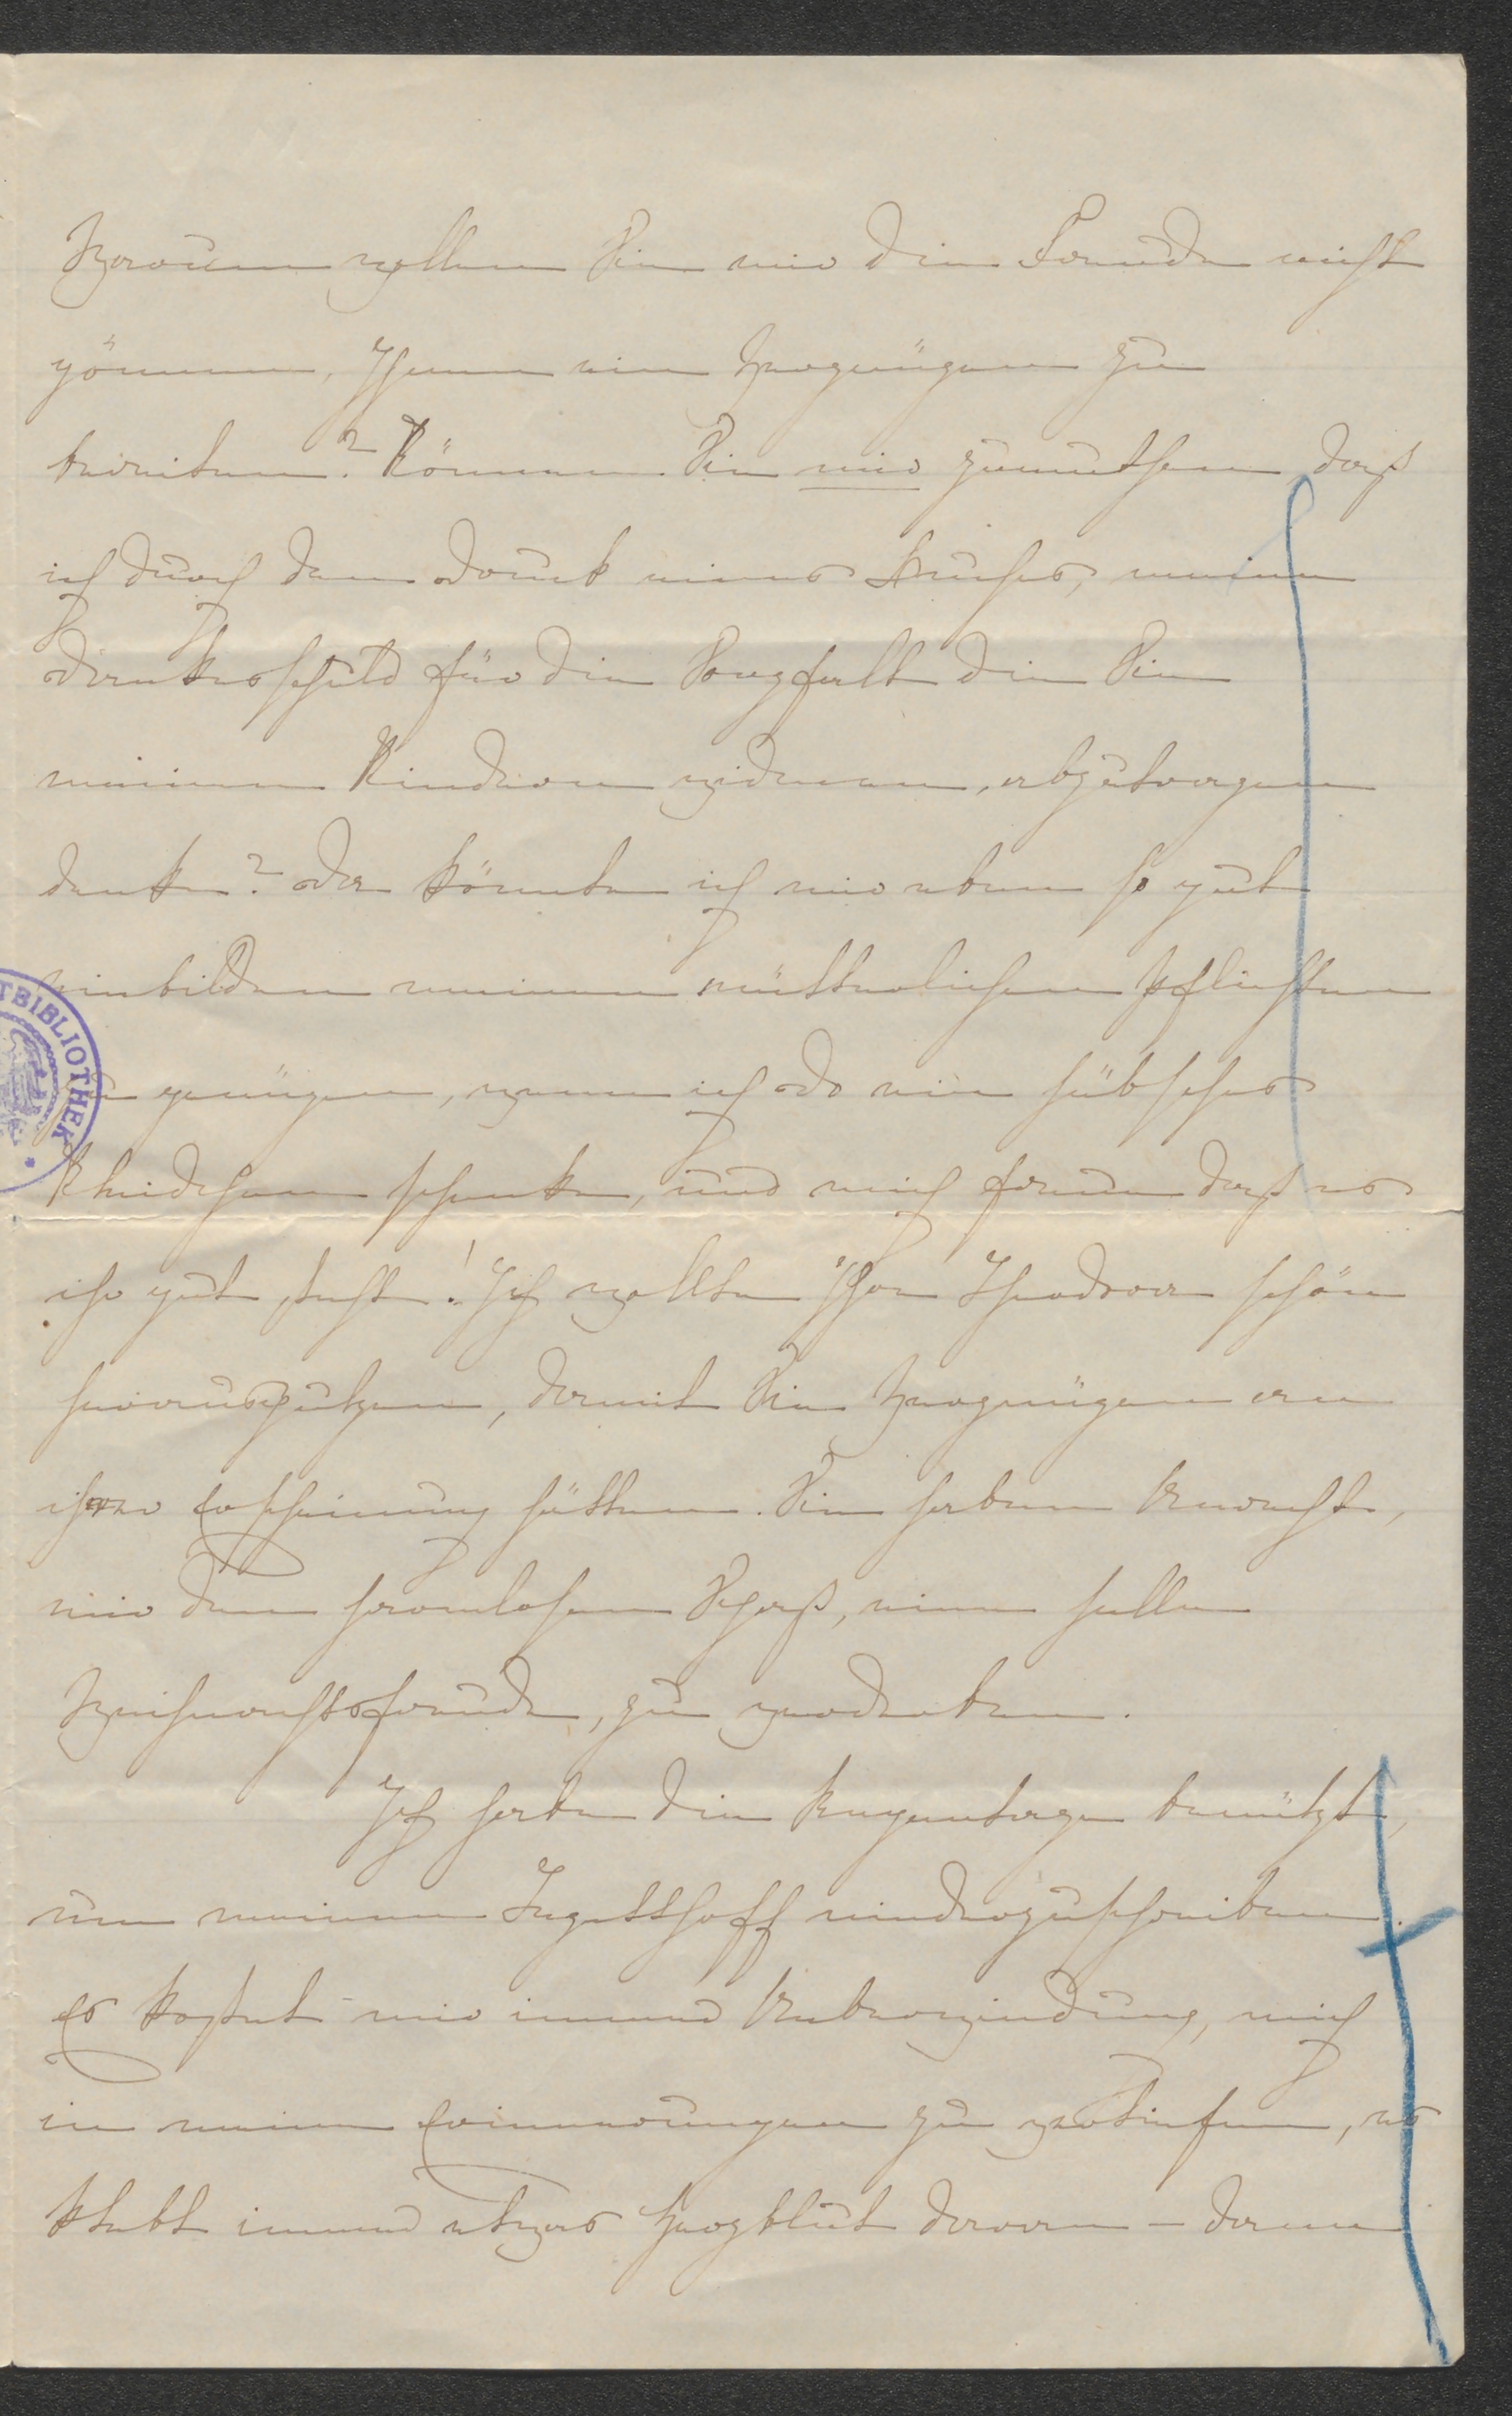 Warum wollen Sie mir die Freude nicht
gönnen, Ihnen ein Vergnügen zu
bereiten? Können Sie mir zumuthen, daß
ich durch den Druck eines Buches, meine
Dankesschuld für die Sorgfalt die Sie
meinen Kindern widmen, abzutragen
denke? Da könnte ich mir eben so gut
einbilden meinen mütterlichen Pflichten
zu genügen, wenn ich ein hübsches
Kleidchen schenke, und mich freue daß es
ihr gut steht! Ich wollte Ihre Theodora schön
herausputzen, damit Sie Vergnügen an
ihrer Erscheinung hätten. Sie haben Unrecht,
mir den harmlosen Spaß, eine helle
Weihnachtsfreude, zu verderben.
Ich habe die Regentage benützt,
um meinen Ingelthoff niederzuschreiben.
Es kostet mir immer Ueberwindung, mich
in meine Erinnerungen zu vertiefen, es
klebt immer etwas Herzblut daran – denn
TBIBLIOTHEK